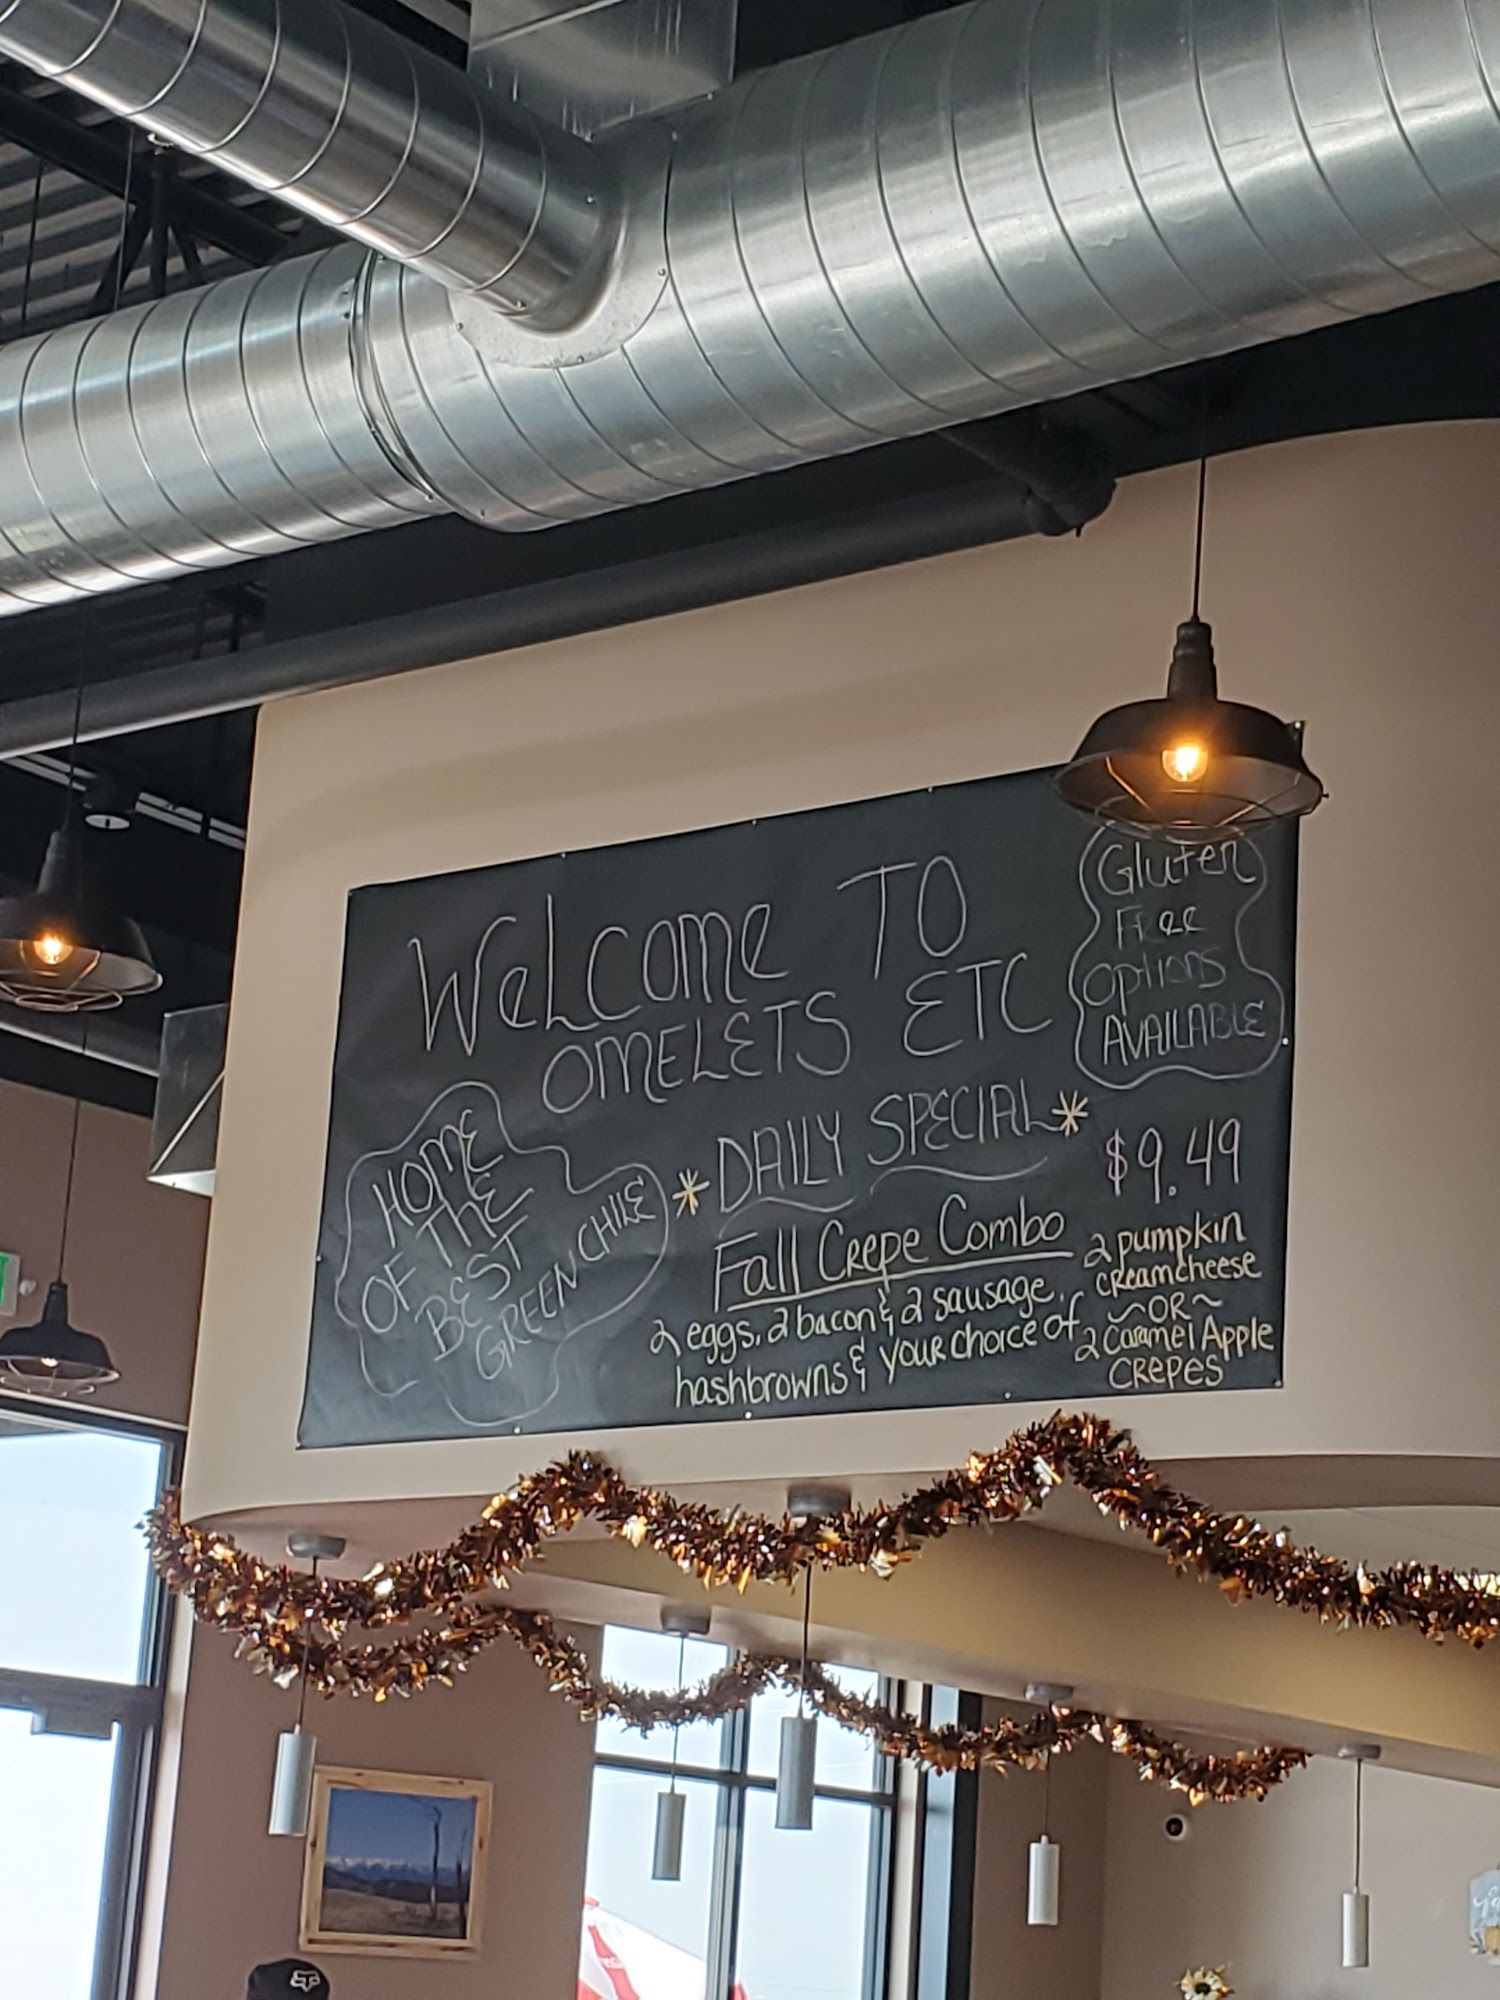 Welcome TO
OMELETS ETC
Gluten
Free
Options
AVAILABLE
HOME
OF THE
BEST
GREEN CHILE
*DAILY SPECIAL*
$9.49
Fall Crepe Combo
2 eggs, 2 bacon & 2 sausage,
hashbrowns & your choice of
2 pumpkin
creamcheese
~OR~
2 Caramel Apple
CREPES